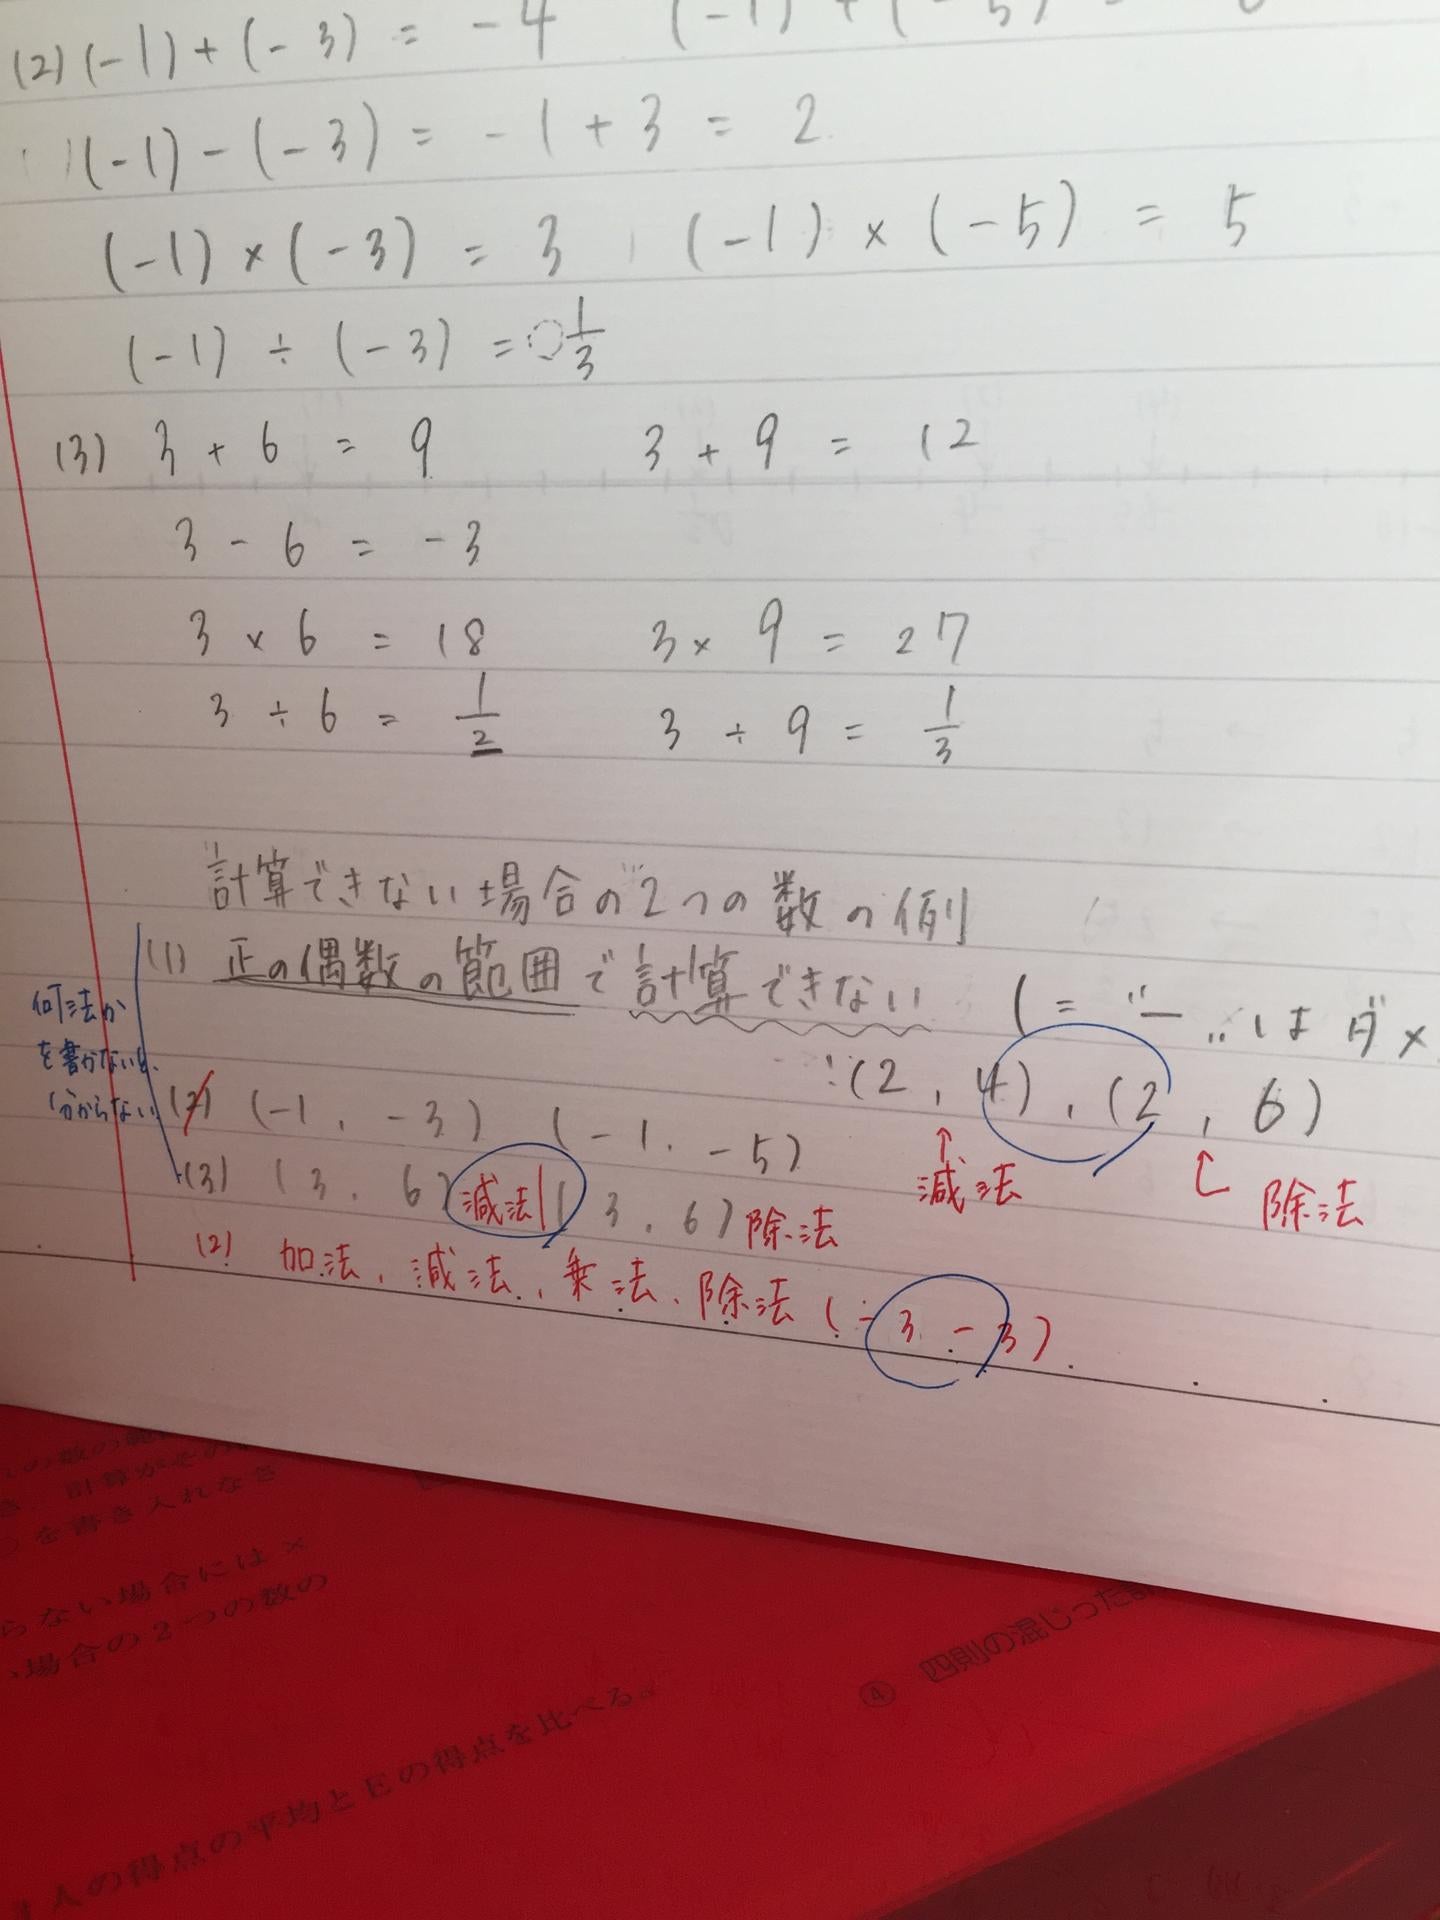 (2) (-1)+(-3) = -4 (-1)+(-5) =
(-1)-(-3) = -1+3 = 2
(-1)×(-3) = 3 (-1)×(-5) = 5
(-1) ÷ (-3) = 1/3
(3) 3 + 6 = 9 3 + 9 = 12
3 - 6 = -3
3 × 6 = 18 3 × 9 = 27
3 ÷ 6 = 1/2 3 ÷ 9 = 1/3
計算できない場合の2つの数の例
(1) 正の偶数の範囲で計算できない (= "ー" はダメ
何法か
を書かないと
分からない
(2, 4), (2, 6)
減法 除法
(2) (-1, -3) (-1, -5)
(3) (3, 6) 減法 (3, 6) 除法
(2) 加法, 減法, 乗法, 除法 (-3 -3)
の数の範
計算がその
を書き入れなさ
らない場合には×
場合の2つの数の
④ 四則の混じった計
人の得点の平均とEの得点を比べる。